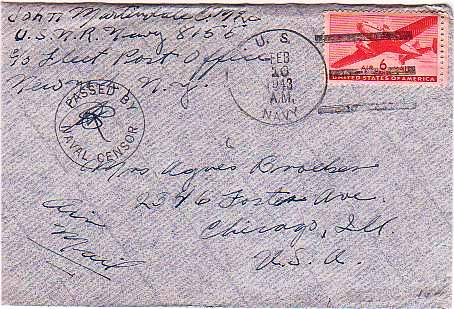 John Martindale
U.S.N.R. Navy 8156
c/o Fleet Post Office
New N.Y.
PASSED BY
NAVAL CENSOR
U.S.
FEB
10
1943
A.M.
NAVY
AIR MAIL
6¢
UNITED STATES OF AMERICA
Mrs. Agnes
2346 Foster Ave.
Chicago, Ill.
U.S.A.
Air
Mail